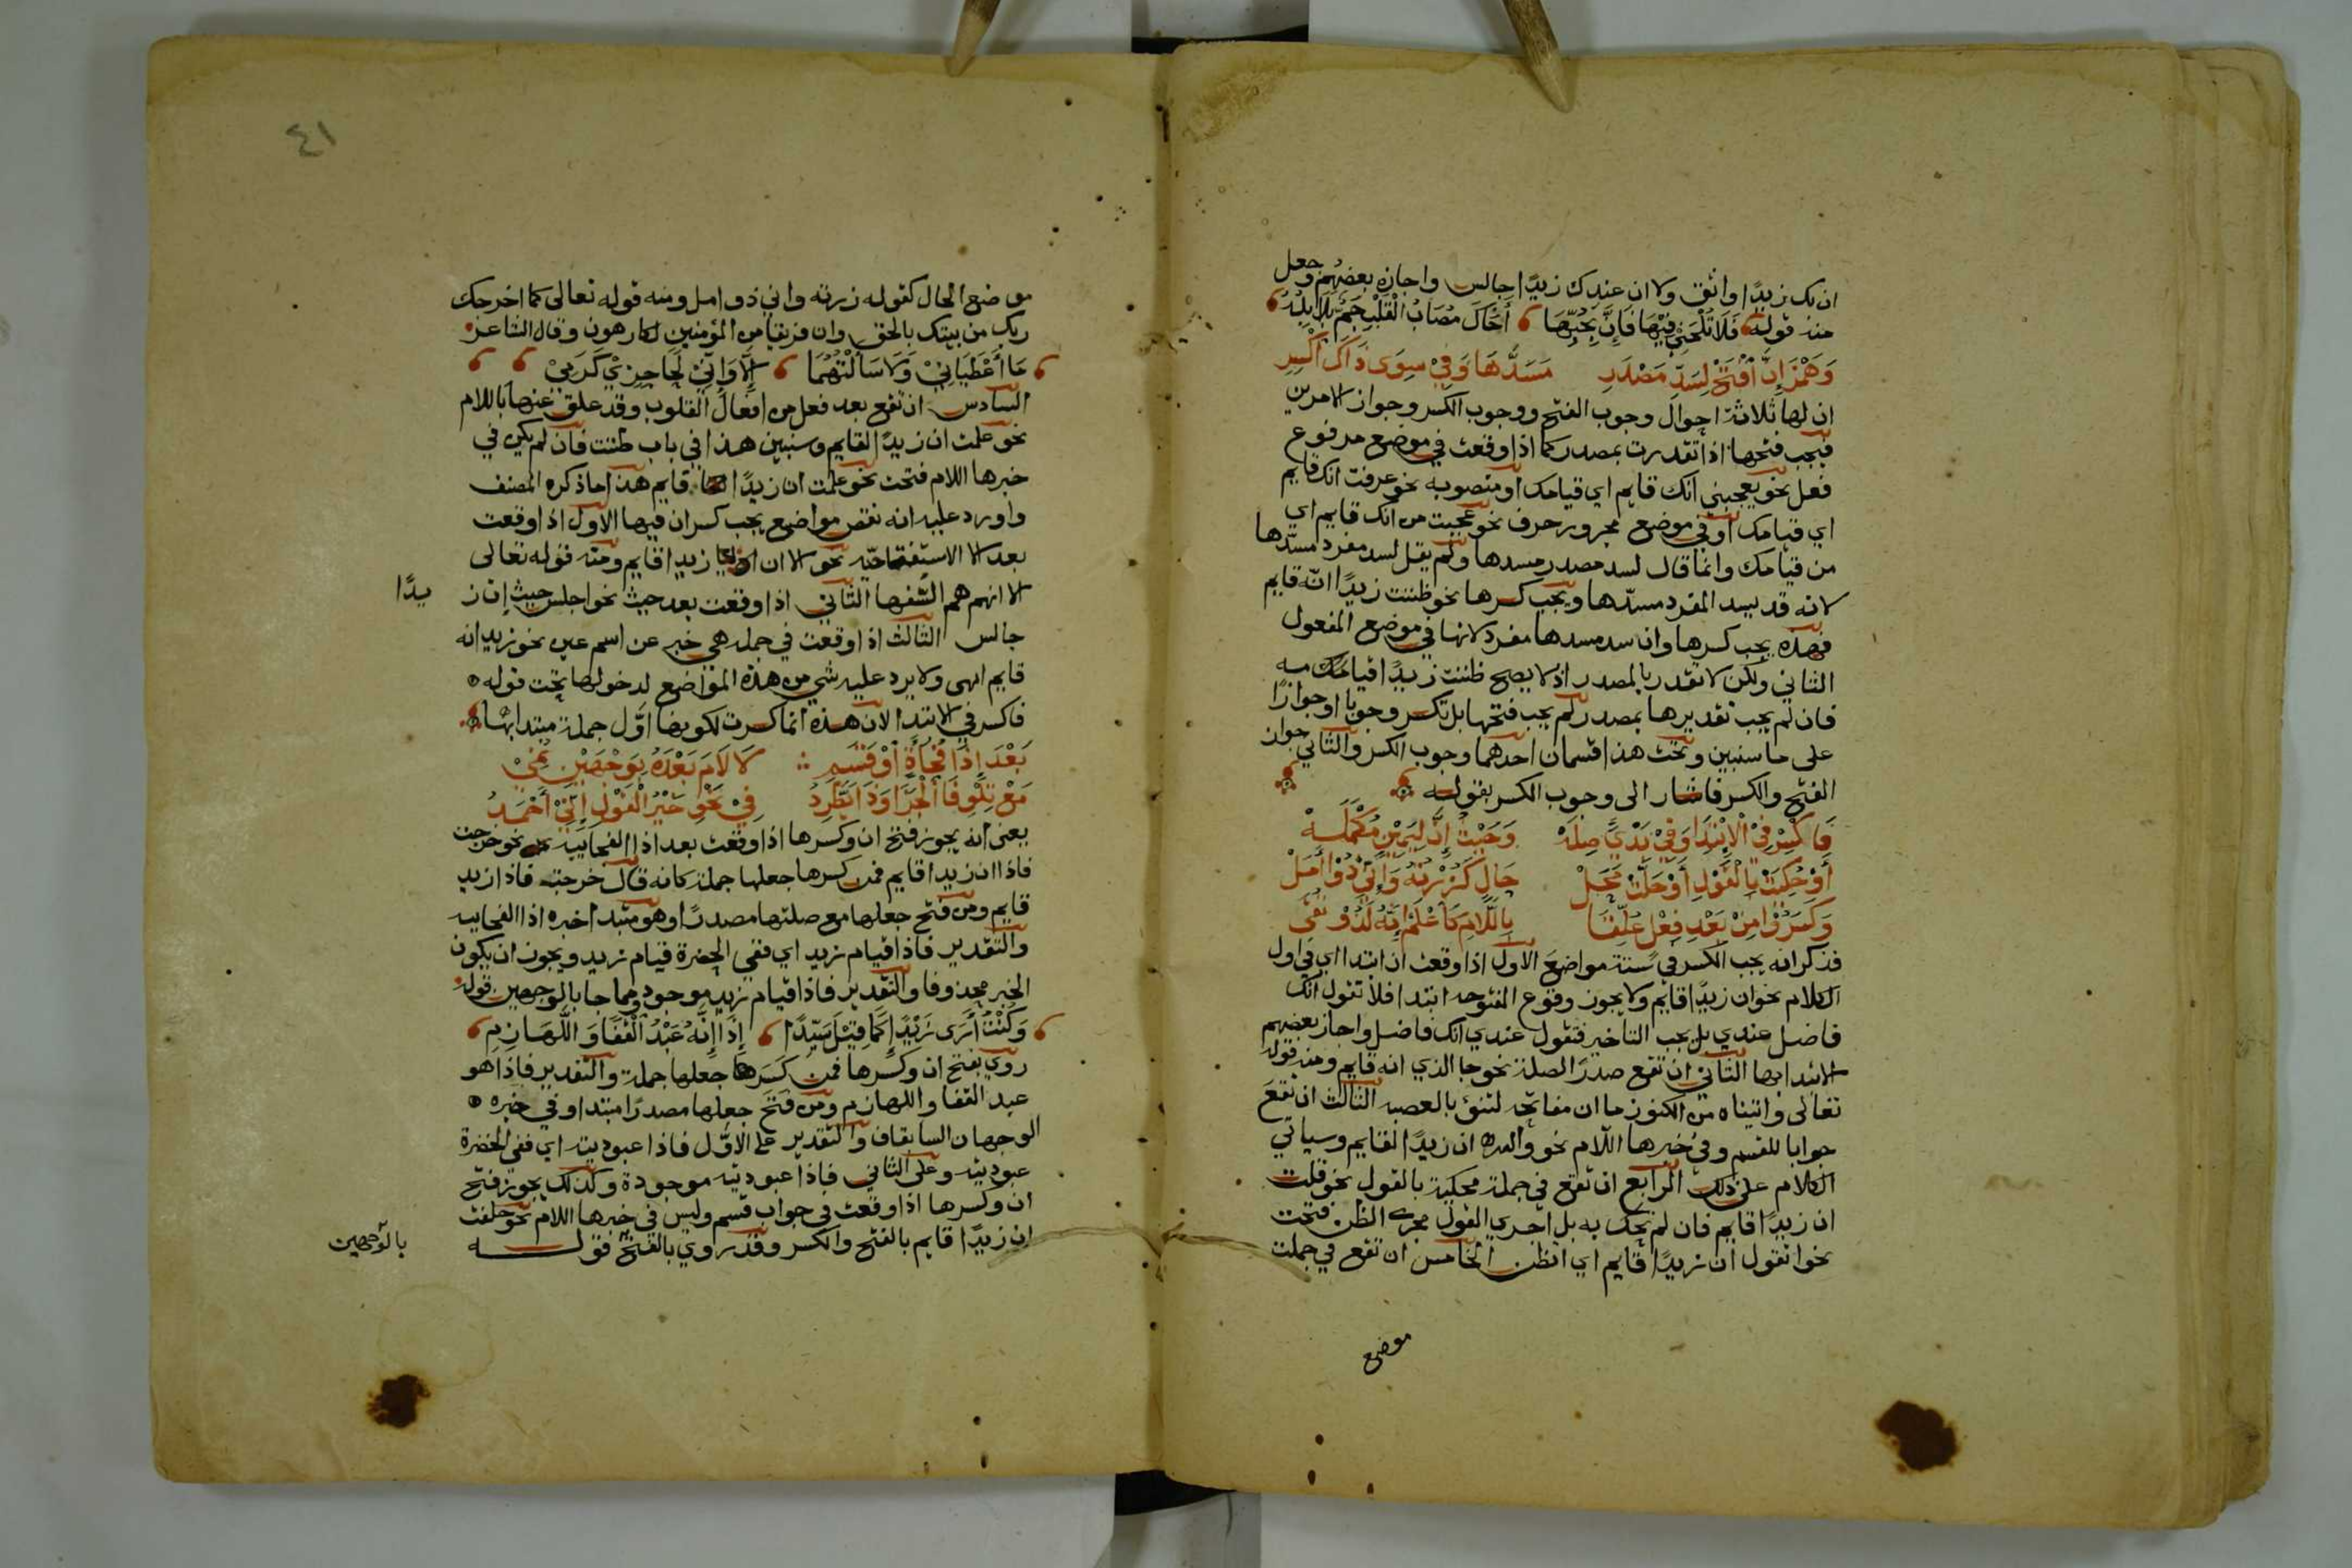 ان بك زيدًا واثق ولا ان عندك زيدًا جالس واجازه بعضهم وجعل
منه قوله فَلَا تَلْحَنِي فِيْهَا فَاِنَّ بِحُبِّهَا أَخَاكَ مُصَابُ الْقَلْبِ جَمٌّ بَلَابِلُهُ
وَهَمْزَ إِنَّ اَفْتَحْ لِسَدِّ مَصْدَرِ مَسَدَّهَا وَفِيْ سِوَى ذَاكَ اكْسِرِ
ان لها ثلاثة احوال وجوب الفتح ووجوب الكسر وجواز الامرين
فيجب فتحها اذا تقدرت بمصدر كما اذا وقعت في موضع مرفوع
فعل نحو يعجبني انك قايم اي قيامك او منصوبه نحو عرفت انك قايم
اي قيامك او في موضع مجرور حرف نحو عجبت من انك قايم اي
من قيامك وانما قال لسد مصدر مسدها ولم يقل لسد مفرد مسدها
لانه قد يسد المفرد مسدّها ويجب كسرها نحو ظننت زيدًا انّه قايم
فهذه يجب كسرها وان سد مسدها مفرد لانها في موضع المفعول
الثاني ولكن لا تقدر بالمصدر اذ لا يصح ظننت زيدًا قيامك
فان لم يجب تقديرها بمصدر لم يجب فتحها بل تكسر وجوبا او جوازًا
على ما سنبين وتحت هذا قسمان احدهما وجوب الكسر والثاني جواز
الفتح والكسر فاشار الى وجوب الكسر بقوله
فَاكْسِرْ فِيْ الْاِبْتِدَا وَفِيْ بَدْيِ صِلَهْ وَحَيْثُ إِنَّ لِيَمِيْنٍ مُكْمِلَهْ
أَوْ حُكِيَتْ بِالْقَوْلِ أَوْ حَلَّتْ مَحَلْ حَالٍ كَزُرْتُهُ وَاِنِّيْ ذُوْ أَمَلْ
وَكَسَرُوْا مِنْ بَعْدِ فِعْلٍ عُلِّقَا بِاللَّامِ كَاعْلَمْ إِنَّهُ لَذُوْ تُقَى
فذكر انه يجب الكسر في ستة مواضع الاول اذا وقعت ان ابتدا اي في اول
الكلام نحو ان زيدًا قايم ولا يجوز وقوع المفتوحه ابتدا فلا تقول انك
فاضل عندي بل يجب التاخير فتقول عندي انك فاضل واجاز بعضهم
الابتدا بها الثاني ان تقع صدر الصلة نحو جا الذي انه قايم ومنه قوله
تعالى واتيناه من الكنوز ما ان مفاتحه لتنؤ بالعصبه الثالث ان تقع
جوابا للقسم وفي خبرها اللام نحو والله ان زيدًا لقايم وسياتي
الكلام على ذلك الرابع ان تقع في جملة محكية بالقول نحو قلت
ان زيدًا قايم فان لم تحك به بل اجري القول مجرى الظن فتحت
نحو اتقول ان زيدًا قايم اي اتظن الخامس ان تقع في جملة
موضع
٤١
موضع الحال كقوله زرته واني ذو امل ومنه قوله تعالى كما اخرجك
ربك من بيتك بالحق وان فريقا من المؤمنين لكارهون وقال الشاعر
مَا أَعْطَيَانِيْ وَلَا سَأَلْتُهُمَا إِلَّا وَإِنِّيْ لَحَاجِزِيْ كَرَمِيْ
السادس ان تقع بعد فعل من افعال القلوب وقد علق عنها باللام
نحو علمت ان زيدًا لقايم وسنبين هذا في باب ظننت فان لم يكن في
خبرها اللام فتحت نحو علمت ان زيدًا قايم هذا ما ذكره المصنف
واورد عليه انه نقص مواضع يجب كسر ان فيها الاول اذا وقعت
بعد الا الاستفتاحيّه نحو الا ان زيدا قايم ومنه قوله تعالى
الا انهم هم السّفها الثاني اذا وقعت بعد حيث نحو اجلس حيث إن ز يدًا
جالس الثالث اذا وقعت في جملة هي خبر عن اسم عين نحو زيد انه
قايم انتهى ولا يرد عليه شي من هذه المواضع لدخولها تحت قوله
فاكسر في الابتدا لان هذه انما كسرت لكونها اوّل جملة مبتدا بها
بَعْدَ إِذَا فُجَاءَةٍ أَوْ قَسَمِ لَا لَامَ بَعْدَهُ بِوَجْهَيْنِ نُمِيْ
مَعْ تِلْوِ فَا الْجَزَا وَذَا يَطَّرِدُ فِيْ نَحْوِ خَيْرُ الْقَوْلِ إِنِّيْ أَحْمَدُ
يعني انه يجوز فتح ان وكسرها اذا وقعت بعد اذا الفجاييه نحو خرجت
فاذا ان زيدا قايم فمن كسرها جعلها جملة كانه قال خرجت فاذا زيد
قايم ومن فتح جعلها مع صلتها مصدرًا وهو مبتدا خبره اذا الفجاييه
والتقدير فاذا قيام زيد اي ففي الحضرة قيام زيد ويجوز ان يكون
الخبر محذوفا والتقدير فاذا قيام زيد موجود ومما جا بالوجهين قوله
وَكُنْتُ أُرَى زَيْدًا كَمَا قِيْلَ سَيِّدًا إِذَا إِنَّهُ عَبْدُ الْقَفَا وَاللَّهَازِمِ
روي بفتح ان وكسرها فمن كَسَرها جعلها جملة والتقدير فاذا هو
عبد القفا واللهازم ومن فَتَحَ جعلها مصدرًا مبتدا وفي خبره
الوجهان السابقان والتقدير على الاوّل فاذا عبوديته اي ففي الحضرة
عبوديته وعلى الثاني فاذا عبوديته موجودة وكذلك يجوز فتح
ان وكسرها اذا وقعت في جواب قسم وليس في خبرها اللام نحو حلفت
ان زيدًا قايم بالفتح والكسر وقد روي بالفتح قوله بالوجهين